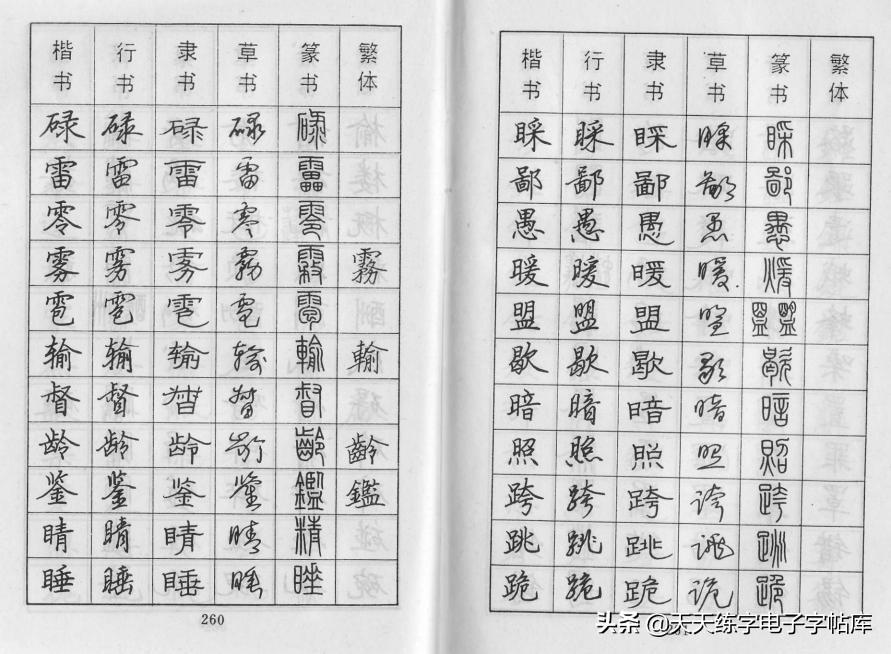 楷书 行书 隶书 草书 篆书 繁体
碌 碌 碌 碌 碌
雷 雷 雷 雷 靁
零 零 零 零 零
雾 雾 雾 雾 霧 霧
雹 雹 雹 雹 雹
输 输 输 输 輸 輸
督 督 督 督 督
龄 龄 龄 龄 齡 齡
鉴 鉴 鉴 鉴 鑑 鑑
睛 睛 睛 睛 精
睡 睡 睡 睡 睡
260
楷书 行书 隶书 草书 篆书 繁体
睬 睬 睬 睬 睬
鄙 鄙 鄙 鄙 鄙
愚 愚 愚 愚 愚
暖 暖 暖 暖 煖
盟 盟 盟 盟 盟 盟
歇 歇 歇 歇 歇
暗 暗 暗 暗 暗
照 照 照 照 照
跨 跨 跨 跨 跨
跳 跳 跳 跳 跳
跪 跪 跪 跪 跪
头条 @天天练字电子字帖库